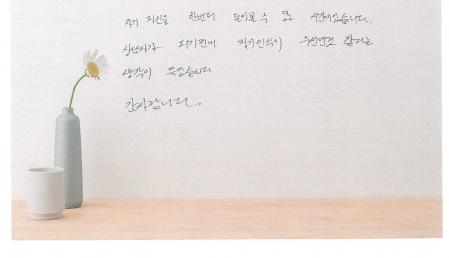 자기 자신을 한번더 돌아볼 수 있는 시간이었습니다.
상담자가 되기전에 자기인식이 우선인것 같다는
생각이 들었습니다
감사합니다.